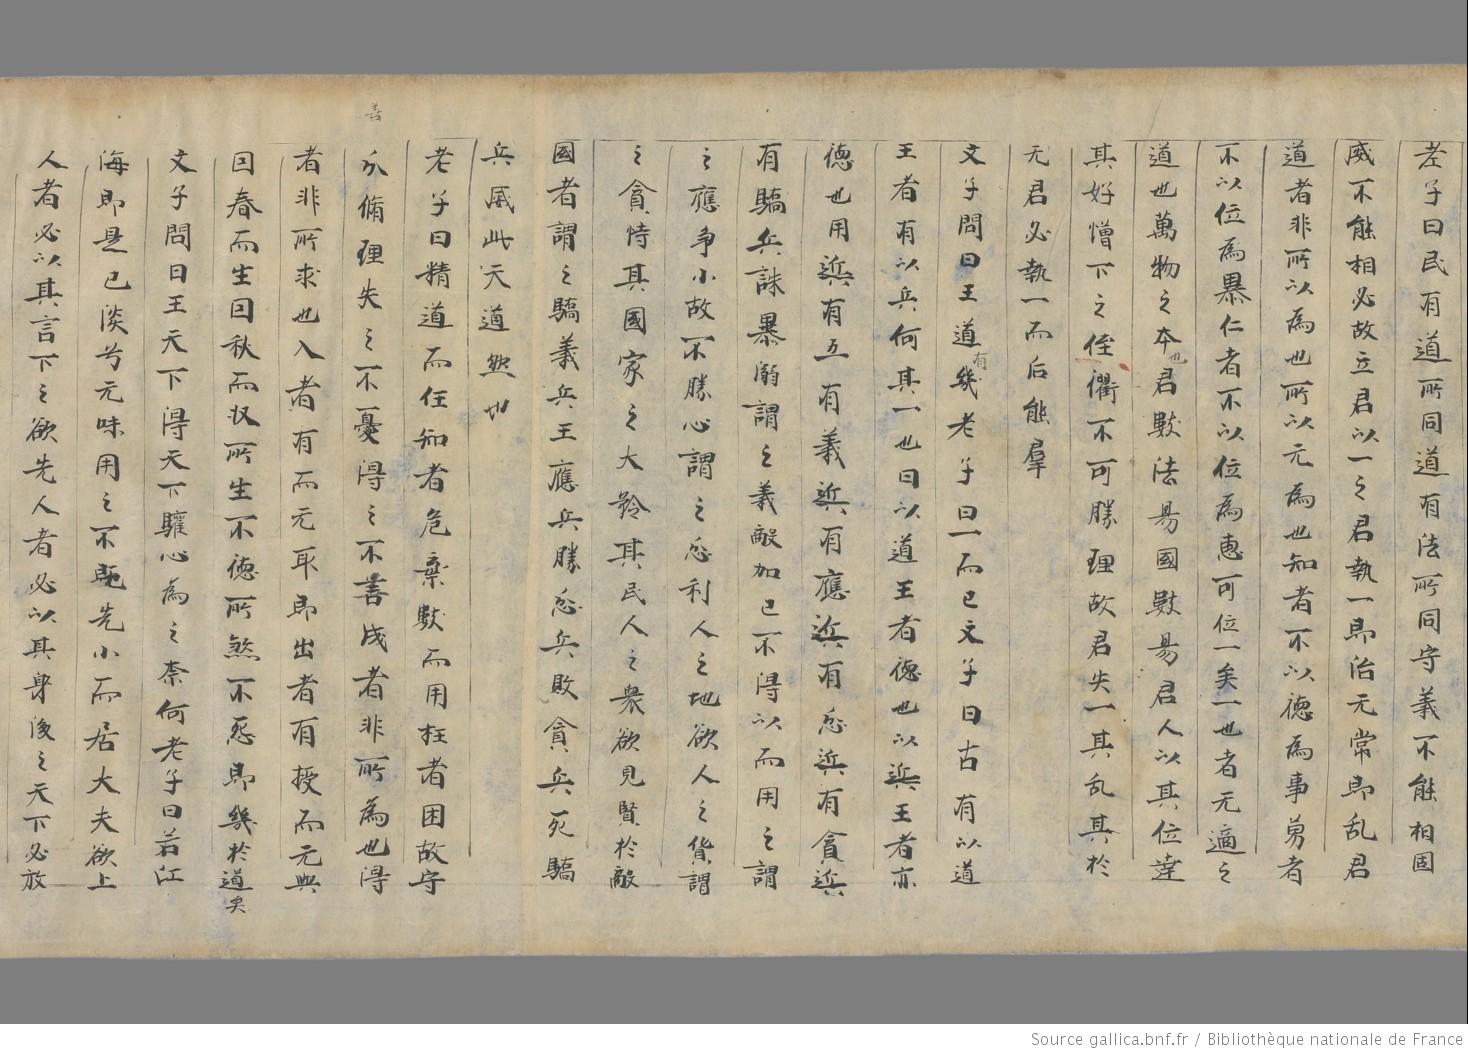 老子曰民有道所同道有法所同守義不能相固
威不能相必故立君以一之君執一即治无常即乱君
道者非所以為也所以无為也知者不以德為事勇者
不以位為暴仁者不以位為惠可位一矣一也者无適之
道也萬物之本也君數法易國數易君人以其位達
其好憎下之侄衢不可勝理故君失一其乱甚於
无君必執一而后能羣
文子問曰王道有幾老子曰一而已文子曰古有以道
王者有以兵何其一也曰以道王者德也以兵王者亦
德也用兵有五有義兵有應兵有忿兵有貪兵
有驕兵誅暴溺謂之義敵加已不得以而用之謂
之應爭小故不勝心謂之忿利人之地欲人之貨謂
之貪恃其國家之大矜其民人之衆欲見賢於敵
國者謂之驕義兵王應兵勝忿兵敗貪兵死驕
兵威此天道然也
老子曰精道而任知者危棄數而用枉者困故守
分脩理失之不憂得之不喜成者非所為也得
者非所求也入者有而无取即出者有授而无與
因春而生因秋而收所生不德所煞不怨即幾於道矣
文子問曰王天下得天下驩心為之柰何老子曰若江
海即是已淡兮无味用之不既先小而居大夫欲上
人者必以其言下之欲先人者必以其身後之天下必放
喜
Source gallica.bnf.fr / Bibliothèque nationale de France